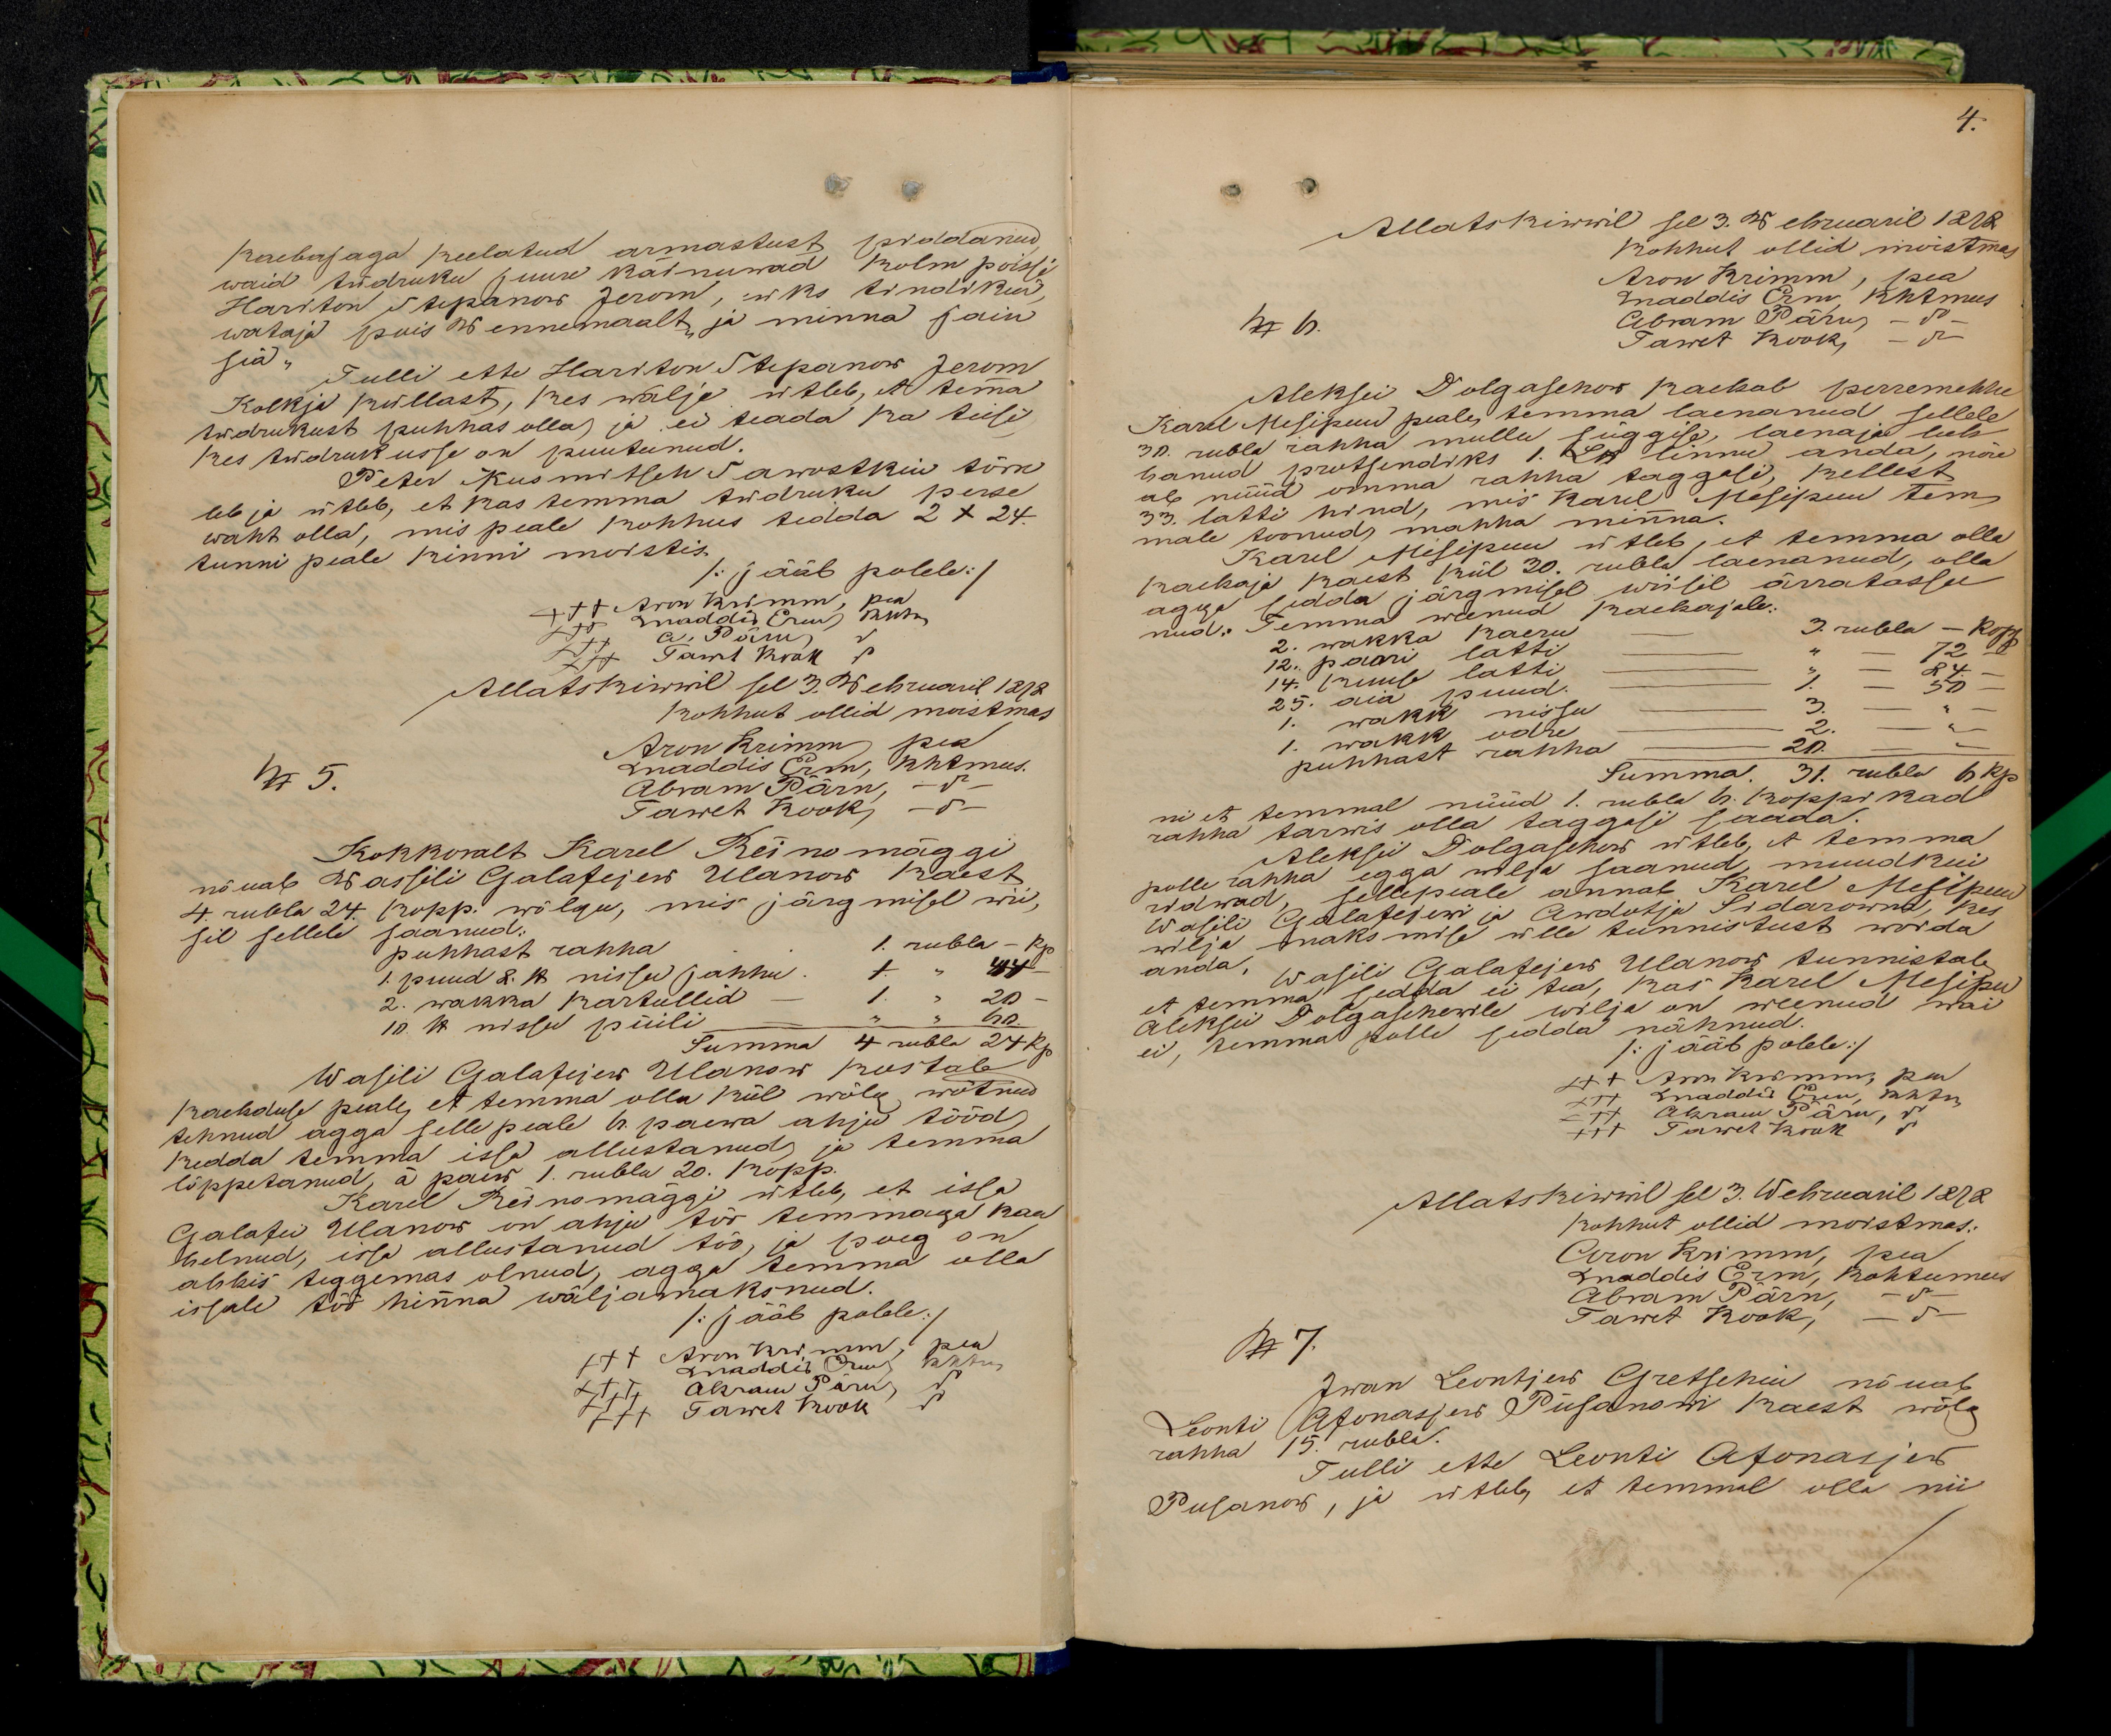 kaebajaga keelatud armastust piddanud,
waid tüdruku juure käinuwad kolm poissi
Hariton Stepanow Jerom, üks tindikui,
wataja pois Wennemaalt, ja minna jain
sia„
Tulli ette Hariton Stepanow Jerom
Kolkja küllast, kes wälja ütleb, et tem̄a
tüdrukust puhhas olla, ja ei teada ka teisi
kes tüdrukusse on puutunud.
Peter Kusmitsch Sawostkin törn
leb ja ütleb, et kas temma tüdruku perse
waht olla, mis peale kohhus tedda 2 x 24.
tunni peale kinni moistis.
/: jääb polele:/
+++ Aron Krimm, pea
+++ Maddis Erm, khtm
+++ A. Pärn, d
+++ Tawet Kook d
Allatskiwwil sel 3. Webruaril 1878
kohhut ollid moistmas
Aron Krimm, pea
Maddis Erm, khtmus.
Abram Pärn, -d-
Tawet Kook, -d-
№ 5.
Kokkoralt Karel Reinomäggi
nõuab Wassili Galafejew Ulanow kaest
4. rubla 24. kopp. wõlgu, mis järgmisel wii,
sil sellele saanud:
puhhast rahha 1. rubla - kp
1. puud 8. ℔ nissu jahhu. 1. " 44 -
2. wakka kartullid - 1. " 20 -
10. ℔ nissu püüli " " 60.
Summa 4 rubla 24 kp
Wasili Galafejew Ulanow kostab
kaebduse peale, et temma olla kül wõlg wõtnud
tehnud agga selle peale 6. paewa ahju tööd,
kedda temma issa allustanud, ja temma
löppetanud, à paew 1. rubla 20. kopp.
Karel Reinomäggi ütleb, et issa
Galafei Ulanow on ahju töö temmaga kau
belnud, issa allustanud töö, ja poeg on
abbis teggemas olnud, agga temma olla
issale töö hin̄na wäljamaksnud.
/: jääb polele:/
+++ Aron Krimm, pea
+++ Maddis Erm, khtm
+++ Abram Pärn, d
+++ Tawet Kook d
4.
Allatskiwwil sel 3. Webruaril 1878
kohhut ollid moistmas
Aron Krimm, pea
Maddis Erm, khtmus
Abram Pärn, -d-
Tawet Kook, -d-
№ 6.
Aleksei Dolgaschow kaebab perremehhe
Karel Mesipuu peale, temma laenanud sellele
30. rubla rahha mullu süggise, laenaja lub
banud protsendiks 1. L℔ linnu anda, nõu
ab nüüd omma rahha taggasi, kellest
33. latti hind, mis Karel Mesipuu tem
male toonud, mahha min̄na.
Karel Mesipuu ütleb, et temma olla
kaebaja kaest kül 30. rubla laenanud, olla
agga sedda järgmisel wiisil ärratassu
nud: Temma weenud kaebajale:
2. wakka kaeru — 3. rubla — kopp
12. paari latti — " — 72 —
14. kuuse latti — " — 84. —
25. aia puud. — 1. — 50 —
1. wakk nissu — 3. — " —
1. wakk odre — 2. — " —
puhhast rahha — 20. — " —
Summa. 31. rubla 6 kp
ni et temmal nüüd 1. rubla 6. koppikad
rahha tarwis olla taggasi saada.
Aleksei Dolgaschow ütleb, et temma
polle rahha egga wilja saanud, muudkui
ridwad, sellepeale annab Karel Mesipuu
Wasili Galafejewi ja Awdotja Sidarowna, kes
wilja maksmise ülle tunnistust woida
anda.
Wasili Galafejew Ulanow tunnistab
et temma sedda ei tea, kas Karel Mesipu
Aleksei Dolgaschewile wilja on weenud wai
ei, temma polle sedda nähnud.
/: jääb polele:/
+++ Aron Krimm, pea
+++ Maddis Erm, khtm
+++ Abram Pärn, d
+++ Tawet Kook d
Allatskiwwil sel 3. Webruaril 1878
kohhut ollid moistmas:
Aron Krimm, pea
Maddis Erm, kohtumees
Abram Pärn, -d-
Tawet Kook, -d-
№ 7.
Iwan Leontjew Gretschin nõuab
Leonti Afonasjew Püsanowi kaest wõlg
rahha 15. rubla.
Tulli ette Leonti Afonasjew
Pusanow, ja ütleb, et temmal olla nii